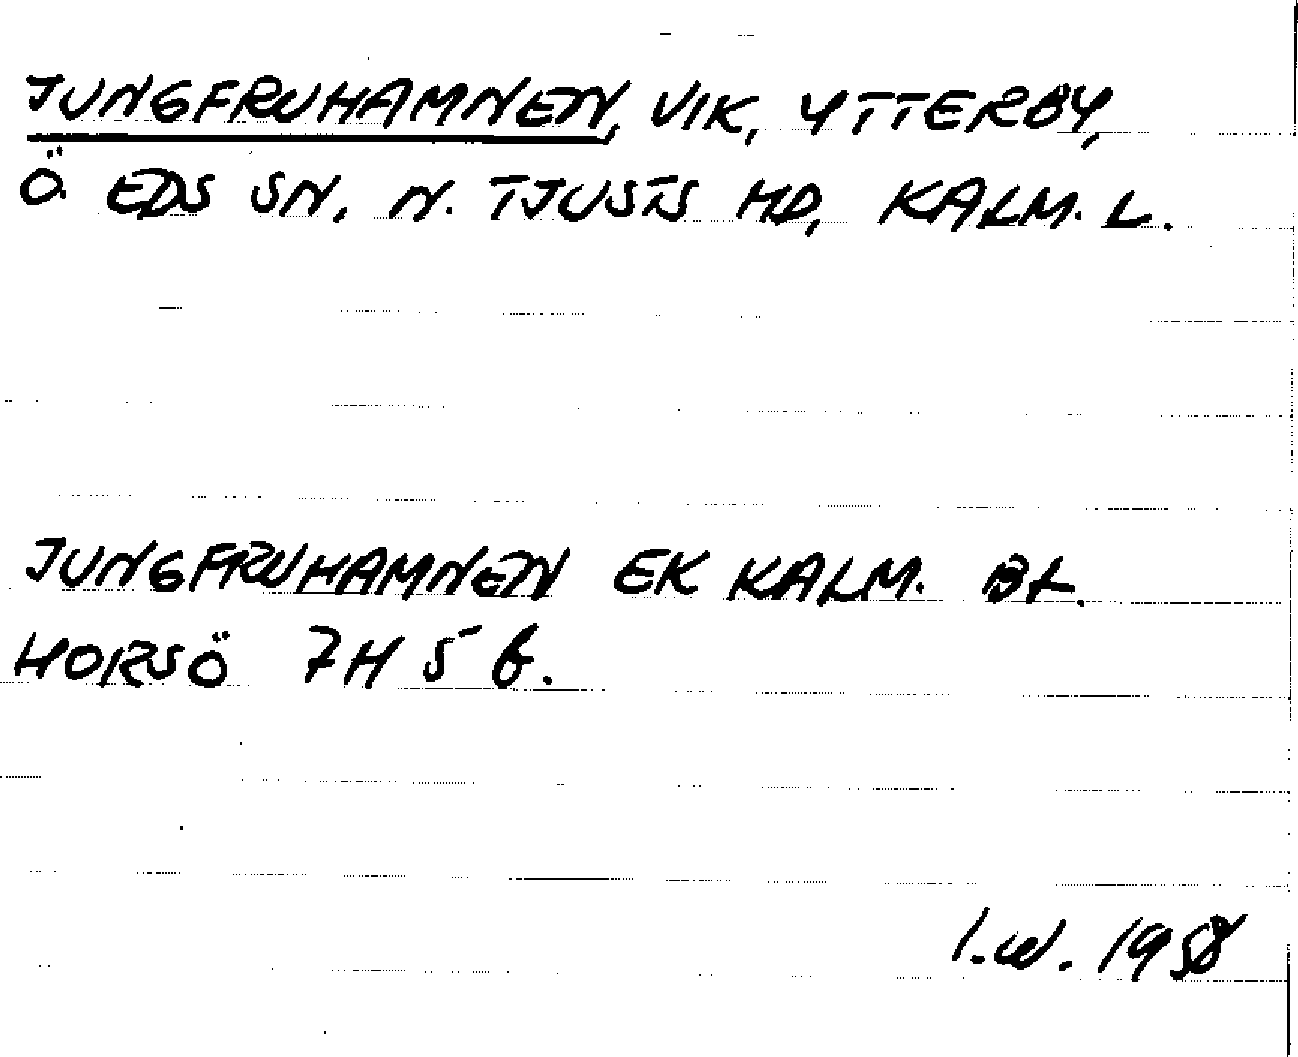 JUNGFRUHAMNEN, VIK, YTTERBY,
Ö. EDS SN, N. TJUSTS HD, KALM. L.
JUNGFRUHAMNEN EK KALM. BL.
HORSÖ 7H 5 b.
I.W. 1958